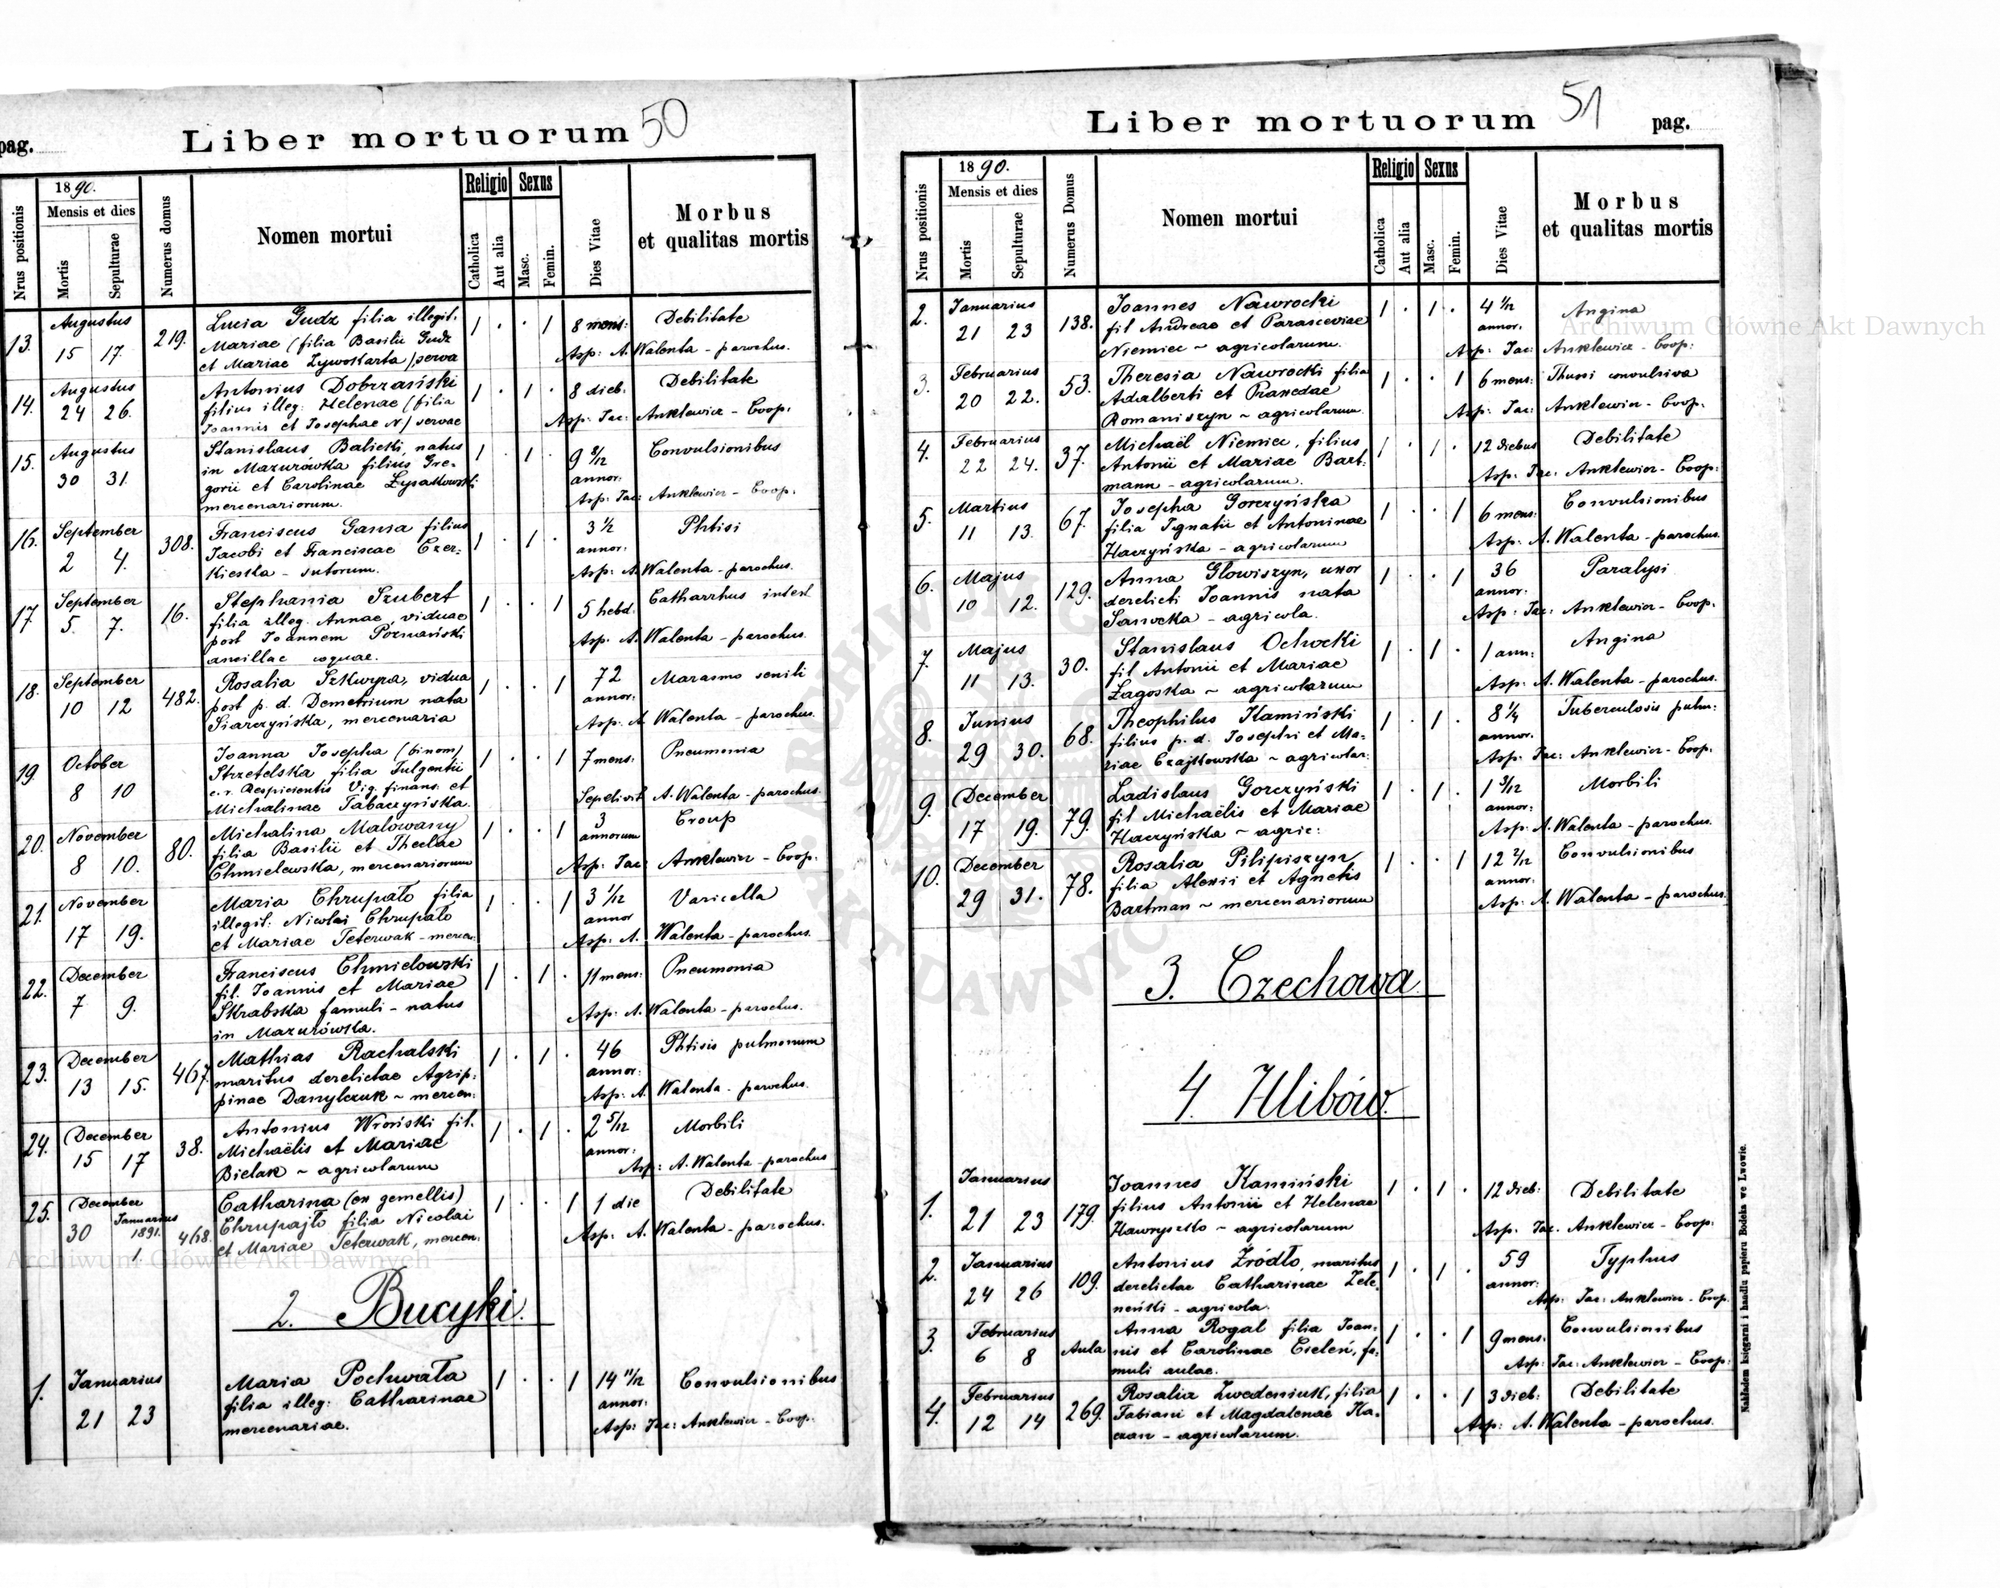 pag.
Liber mortuorum 50
Nrus positionis
1890.
Mensis et dies
Mortis
Sepulturae
Numerus domus
Nomen mortui
Religio
Catholica
Aut alia
Sexus
Masc.
Femin.
Dies Vitae
Morbus
et qualitas mortis
13. Augustus 15 17. 219.
Lucia Gudz filia illegit.
Mariae (filia Basilii Gudz
et Mariae Zywokarta) serva
1 . . 1 8 mens: Debilitate
Asp: A. Walenta - parochus.
14. Augustus 24 26.
Antonius Dobrzański
filius illeg: Helenae (filia
Joannis et Josephae N.) servae
1 . 1 . 8 dieb. Debilitate
Asp: Jac: Anklewicz - Coop.
15. Augustus 30 31
Stanislaus Balicki, natus
in Mazurówka filius Gre-
gorii et Carolinae Łysakowski
mercenariorum.
1 . 1 . 9 8/12 annor: Convulsionibus
Asp: Jac: Anklewicz - Coop.
16. September 2 4. 308.
Franciscus Gansa filius
Jacobi et Franciscae Czer-
kieska - sutorum.
1 . 1 . 3 1/2 annor: Phtisi
Asp: A. Walenta - parochus.
17 September 5. 7. 16.
Stephania Szubert
filia illeg. Annae, viduae
post Joannem Poznański
ancillae coquae.
1 . . 1 5 hebd: Catharrhus intest
Asp: A. Walenta - parochus.
18. September 10 12 482.
Rosalia Szkwyra, vidua
post p. d. Demetrium nata
Siarczyńska, mercenaria
1 . . 1 72 annor: Marasmo senili
Asp: A Walenta - parochus.
19 October 8 10
Joanna Josepha (binom)
Strzetelska filia Fulgentii
c. r. Respicientis Vig. finans. et
Michalinae Tabaczyńska.
1 . . 1 7 mens: Pneumonia
Sepelivit A. Walenta - parochus.
20. November 8 10. 80.
Michalina Malowany
filia Basilii et Theclae
Chmielewska, mercenariorum
1 . . 1 3 annorum Croup
Asp: Jac: Anklewicz - Coop.
21. November 17 19.
Maria Chrupało filia
illegit: Nicolai Chrupało
et Mariae Teterwak - mercen.
1 . . 1 3 1/12 annor Varicella
Asp: A. Walenta - parochus.
22. December 7 9.
Franciscus Chmielowski
fil. Joannis et Mariae
Skrabska famuli - natus
in Mazurówka.
1 . 1 . 11 mens: Pneumonia
Asp: A. Walenta - parochus.
23. December 13 15. 467.
Mathias Rachalski
maritus derelictae Agrip-
pinae Danylczuk ~ mercen:
1 . 1 . 46 annor: Phtisis pulmonum
Asp: A. Walenta - parochus.
24. December 15 17 38.
Antonius Wroński fil.
Michaëlis et Mariae
Bielak ~ agricolarum
1 . 1 . 2 5/12 annor: Morbili
Asp: A. Walenta - parochus
25. December 30 Januarius 1891. 1. 468.
Catharina (ex gemellis)
Chrupajło filia Nicolai
et Mariae Teterwak, mercen:
1 . . 1 1 die Debilitate
Asp: A. Walenta - parochus.
2. Bucyki.
1. Januarius 21 23
Maria Pochwała
filia illeg: Catharinae
mercenariae.
1 . . 1 14 11/12 annor: Convulsionibus
Asp: Jac: Anklewicz - Coop.
Liber mortuorum 51 pag.
Nrus positionis
1890.
Mensis et dies
Mortis
Sepulturae
Numerus Domus
Nomen mortui
Religio
Catholica
Aut alia
Sexus
Masc.
Femin.
Dies Vitae
Morbus
et qualitas mortis
2. Januarius 21 23 138.
Joannes Nawrocki
fil Andreae et Parasceviae
Niemiec ~ agricolarum.
1 . 1 . 4 1/2 annor. Angina
Asp: Jac: Anklewicz - Coop:
3. Februarius 20 22. 53.
Theresia Nawrocki filia
Adalberti et Praxedae
Romaniszyn ~ agricolarum
1 . . 1 6 mens: Thussi convulsiva
Asp: Jac: Anklewicz - Coop.
4. Februarius 22 24. 37.
Michaël Niemiec, filius
Antonii et Mariae Bart-
mann - agricolarum.
1 . 1 . 12 diebus Debilitate
Asp: Jac: Anklewicz - Coop:
5. Martius 11 13. 67.
Josepha Gorczyńska
filia Ignatii et Antoninae
Haczyńska - agricolarum
1 . . 1 6 mens: Convulsionibus
Asp: A. Walenta - parochus.
6. Majus 10 12. 129.
Anna Głowiszyn, uxor
derelicti Joannis nata
Sanocka - agricola.
1 . . 1 36 annor. Paralysi
Asp: Jac: Anklewicz - Coop.
7. Majus 11 13. 30.
Stanislaus Ochocki
fil Antonii et Mariae
Zagoska ~ agricolarum
1 . 1 . 1 ann: Angina
Asp: A. Walenta - parochus.
8. Junius 29 30. 68.
Theophilus Kamiński
filius p. d. Josephi et Ma-
riae Czajkowska ~ agricolar:
1 . 1 . 8 1/4 annor. Tuberculosis pulm:
Asp: Jac: Anklewicz - Coop.
9. December 17 19. 79.
Ladislaus Gorczyński
fil Michaëlis et Mariae
Haczyńska ~ agric:
1 . 1 . 1 3/12 annor: Morbili
Asp: A. Walenta - parochus.
10. December 29 31. 78.
Rosalia Pilipiszyn
filia Alexii et Agnetis
Bartman ~ mercenariorum
1 . . 1 12 2/12 annor. Convulsionibus
Asp: A. Walenta - parochus.
3. Czechowa.
4. Hlibów.
1. Januarius 21 23 179.
Joannes Kamiński
filius Antonii et Helenae
Hawryszko ~ agricolarum
1 . 1 . 12 dieb: Debilitate
Asp: Jac. Anklewicz - Coop:
2. Januarius 24 26 109.
Antonius Źródło, maritus
derelictae Catharinae Zele-
neński - agricola.
1 . 1 . 59 annor: Typhus
Asp: Jac: Anklewicz - Coop.
3. Februarius 6 8 Aula
Anna Rogal filia Joan-
nis et Carolinae Cieleń, fa-
muli aulae.
1 . . 1 9 mens. Convulsionibus
Asp: Jac: Anklewicz - Coop:
4. Februarius 12 14 269.
Rosalia Zwedeniuk, filia
Fabiani et Magdalenae Ka-
czan - agricolarum.
1 . . 1 3 dieb: Debilitate
Asp: A. Walenta - parochus.
Nakładem księgarni i handlu papieru Bodeka we Lwowie.
Archiwum Główne Akt Dawnych
Archiwum Główne Akt Dawnych
ARCHIWUM GŁÓWNE AKT DAWNYCH